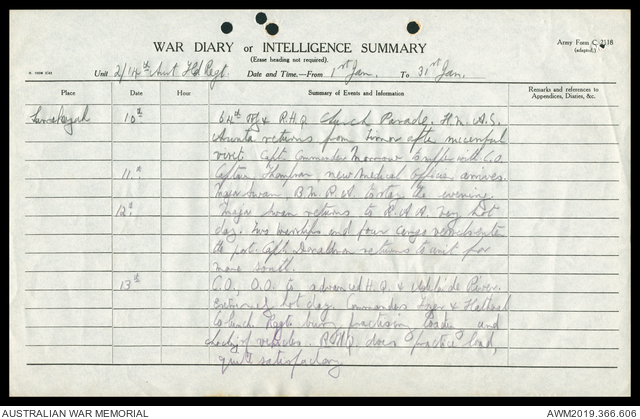 Army Form C 2118
WAR DIARY or INTELLIGENCE SUMMARY
(Erase heading not required).
Unit 2/14th Aust Fd Regt. Date and Time.—From 1st Jan. To 31st Jan.
Place Date Hour Summary of Events and Information Remarks and references to Appendices, Diaries, &c.
10th 64th & R.H.Q Church Parade. H.M.A.S.
Arunta returns from Timor after successful
visit. Capt. Commander Morrow with C.O.
11th Captain Thompson new medical officer arrives.
Major Swan B.M.R.A. the evening.
12th Major Swan returns to R.A.A. Very hot
day. Two warships and four cargo vessels enter
the port. Capt. Donaldson returns to unit for
move south.
13th C.O., O.O. to advanced H.Q & Adelaide River.
Extremely hot day. Commanders &
to lunch. Regt busy practising loading and
of vehicles. R.H.Q does "practice" load,
quite satisfactory.
AUSTRALIAN WAR MEMORIAL AWM2019.366.606